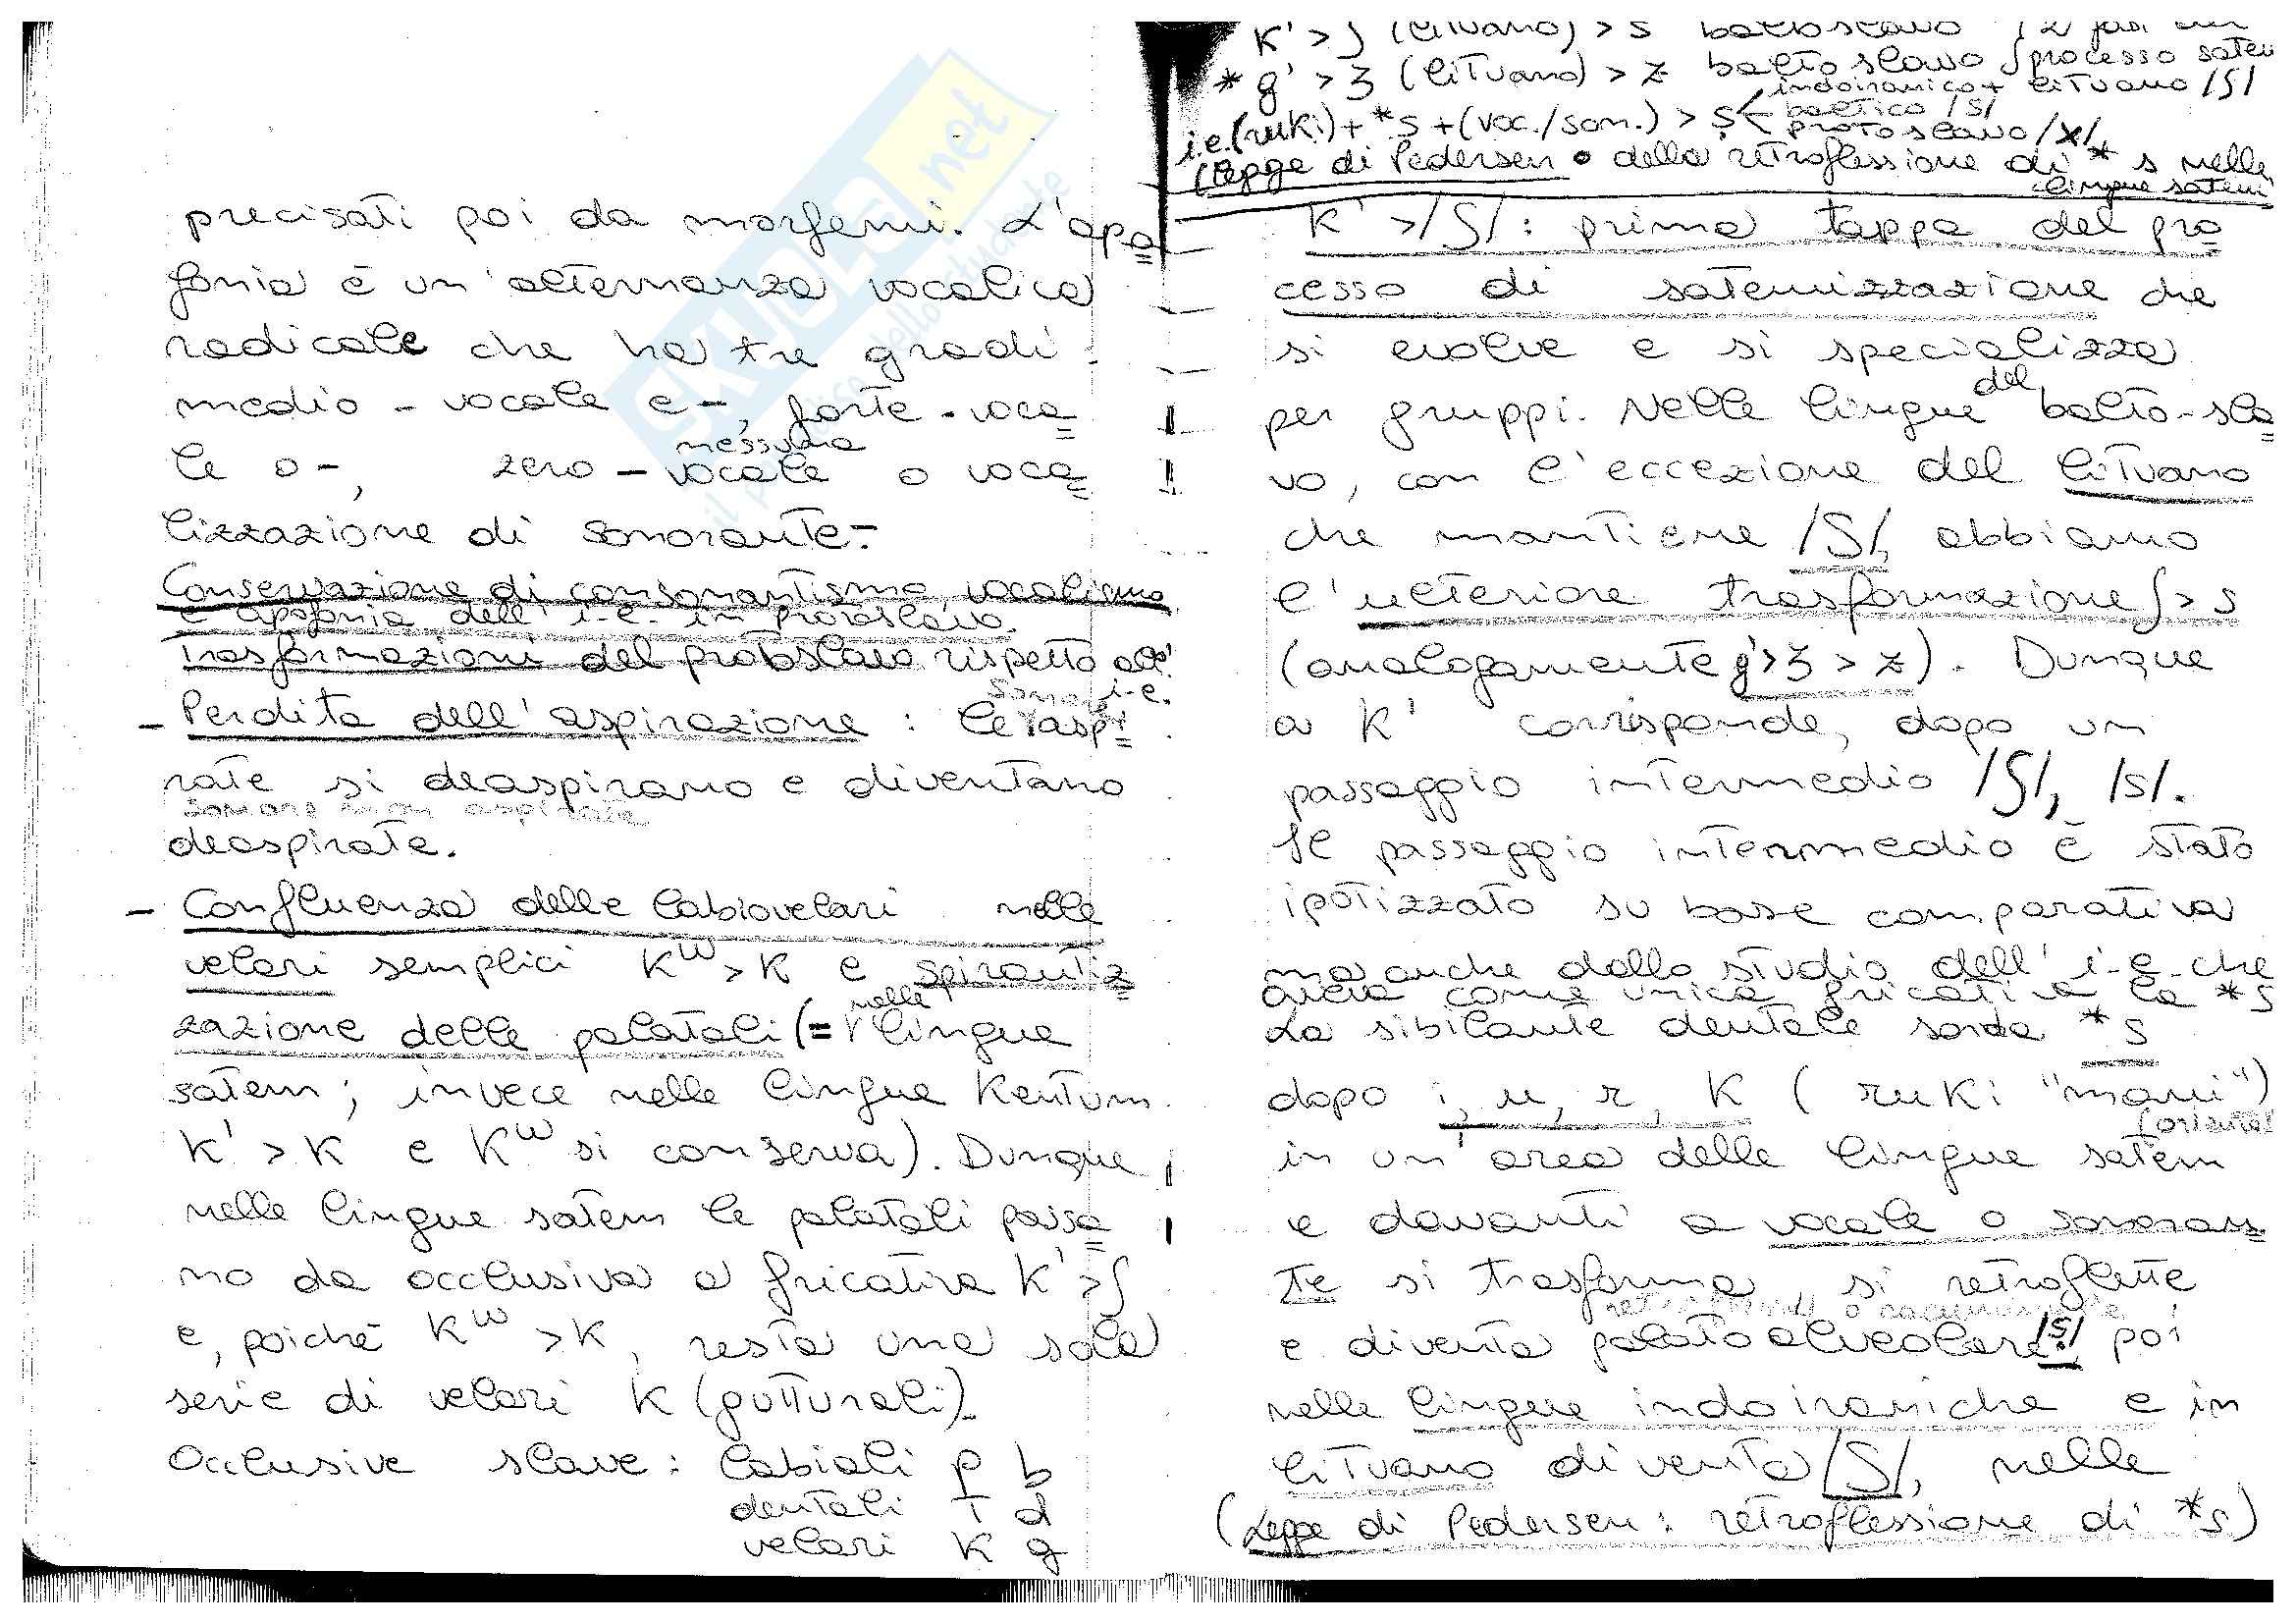 precisati poi da morfemi. L'apo
fonia è un'alternanza vocalica
radicale che ha tre gradi:
medio - vocale e-, forte - voca
le o-, zero - nessuna vocale o voca
lizzazione di sonorante.-
Conservazione di consonantismo, vocalismo
e apofonia dell' i-e. in protoslavo.
Trasformazioni del protoslavo rispetto all' i-e.
- Perdita dell'aspirazione: le sonore aspi
rate si deaspirano e diventano
sonore non aspirate
deaspirate.
- Confluenza delle labiovelari nelle
velari semplici Kʷ > K e spirantiz
zazione delle palatali (= nelle lingue
satem; invece nelle lingue Kentum
K' > K e Kʷ si conserva). Dunque
nelle lingue satem le palatali passa
no da occlusiva a fricativa K' > ʃ
e, poiché Kʷ > K, resta una sola
serie di velari K (gutturali).
Occlusive slave: labiali p b
dentali t d
velari K g
K' > ʃ (lituano) > s baltoslavo
* g' > ʒ (lituano) > z baltoslavo processo satem
i.e. (ruki) + *s + (voc./son.) > ṣ < indoiranico + lituano /ʃ/
baltico /s/
protoslavo /x/
(legge di Pedersen o della retroflessione di *s nelle
lingue satem
K' > /ʃ/: prima tappa del pro
cesso di satemizzazione che
si evolve e si specializza
per gruppi. Nelle lingue del balto-sla
vo, con l'eccezione del lituano
che mantiene /ʃ/, abbiamo
l'ulteriore trasformazione ʃ > s
(analogamente g' > ʒ > z). Dunque
a K' corrisponde, dopo un
passaggio intermedio /ʃ/, /s/.
Il passaggio intermedio è stato
ipotizzato su base comparativa
ma anche dallo studio dell' i-e. che
aveva come unica fricativa la *s
La sibilante dentale sorda *s
dopo i, u, r, K (ruki "mani")
in un'area delle lingue satem (orientali
e davanti a vocale o sonoran
te si trasforma, si retroflette
e diventa palatoalveolare /ṣ/, poi
nelle lingue indoiraniche e in
lituano diventa /ʃ/, nelle
(Legge di Pedersen: retroflessione di *s)
SKUOLA.net